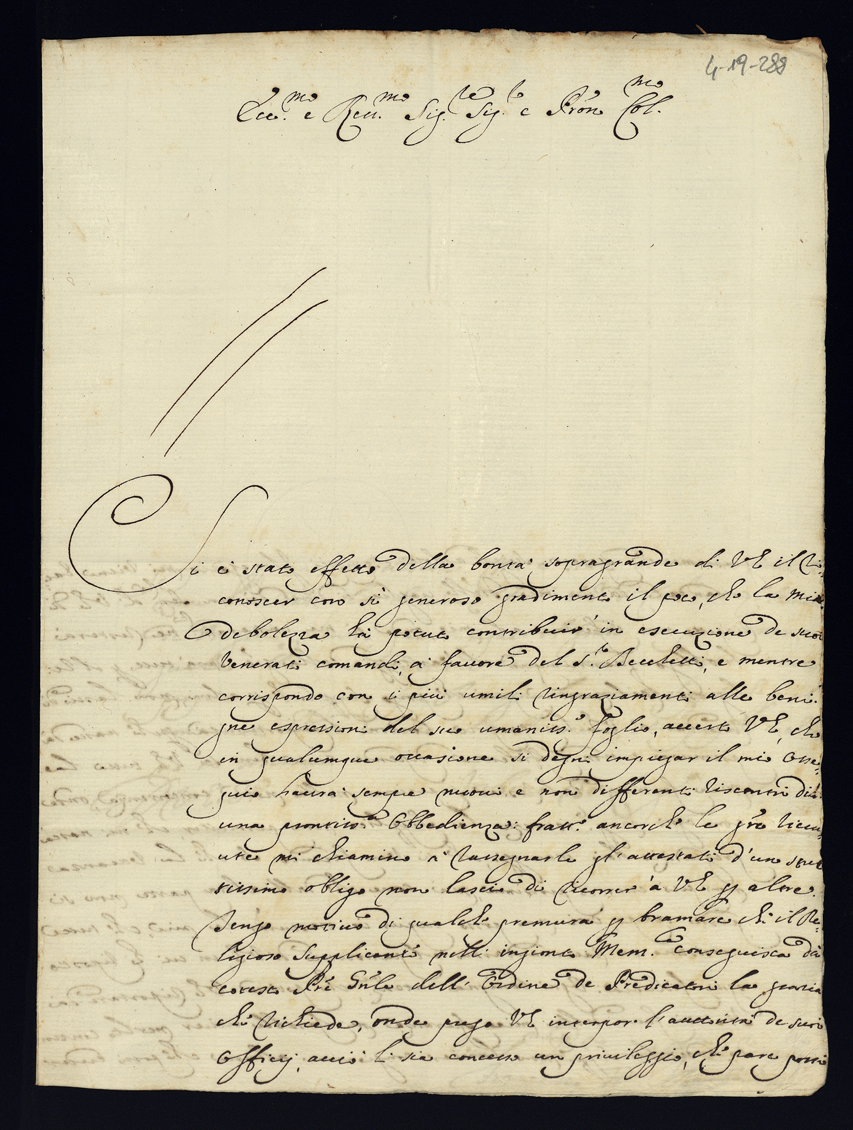 4-19-288
Ecc.mo e Reu.mo Sig.re Sig.re e Pron Col.mo
Si è stato effetto della bontà sopragrande di VE il ri=
conoscer con sì generoso gradimento il poco, che la mia
debolezza hà potuto contribuir' in esecuzione de suoi
venerati comandi, à fauore del S.re Becchetti, e mentre
corrispondo con i più umili ringraziamenti alle beni=
gne espressioni del suo umaniss.o foglio, accerto VE, che
in qualumque occasione si degni impiegar il mio osse=
quio haurà sempre nuoui e non differenti riscontri di
una prontiss.a obbedienza: fratt.o ancorche le gre riceu=
ute mi chiamino à rassegnarle gl'attestati d'un stret=
tissimo obligo non lascio di ricorrer' à VE p altre.
Tengo motiuo di qualche premura p bramare che il Re=
ligioso supplicante nell' ingionto Mem.le conseguisca da
cotesto Pre Gnle dell' Ordine de Predicatori la grazia
che richiede, onde prego VE interpor l'auttorità de suoi
Officij, acciò li sia concesso un priuileggio, che pare possi